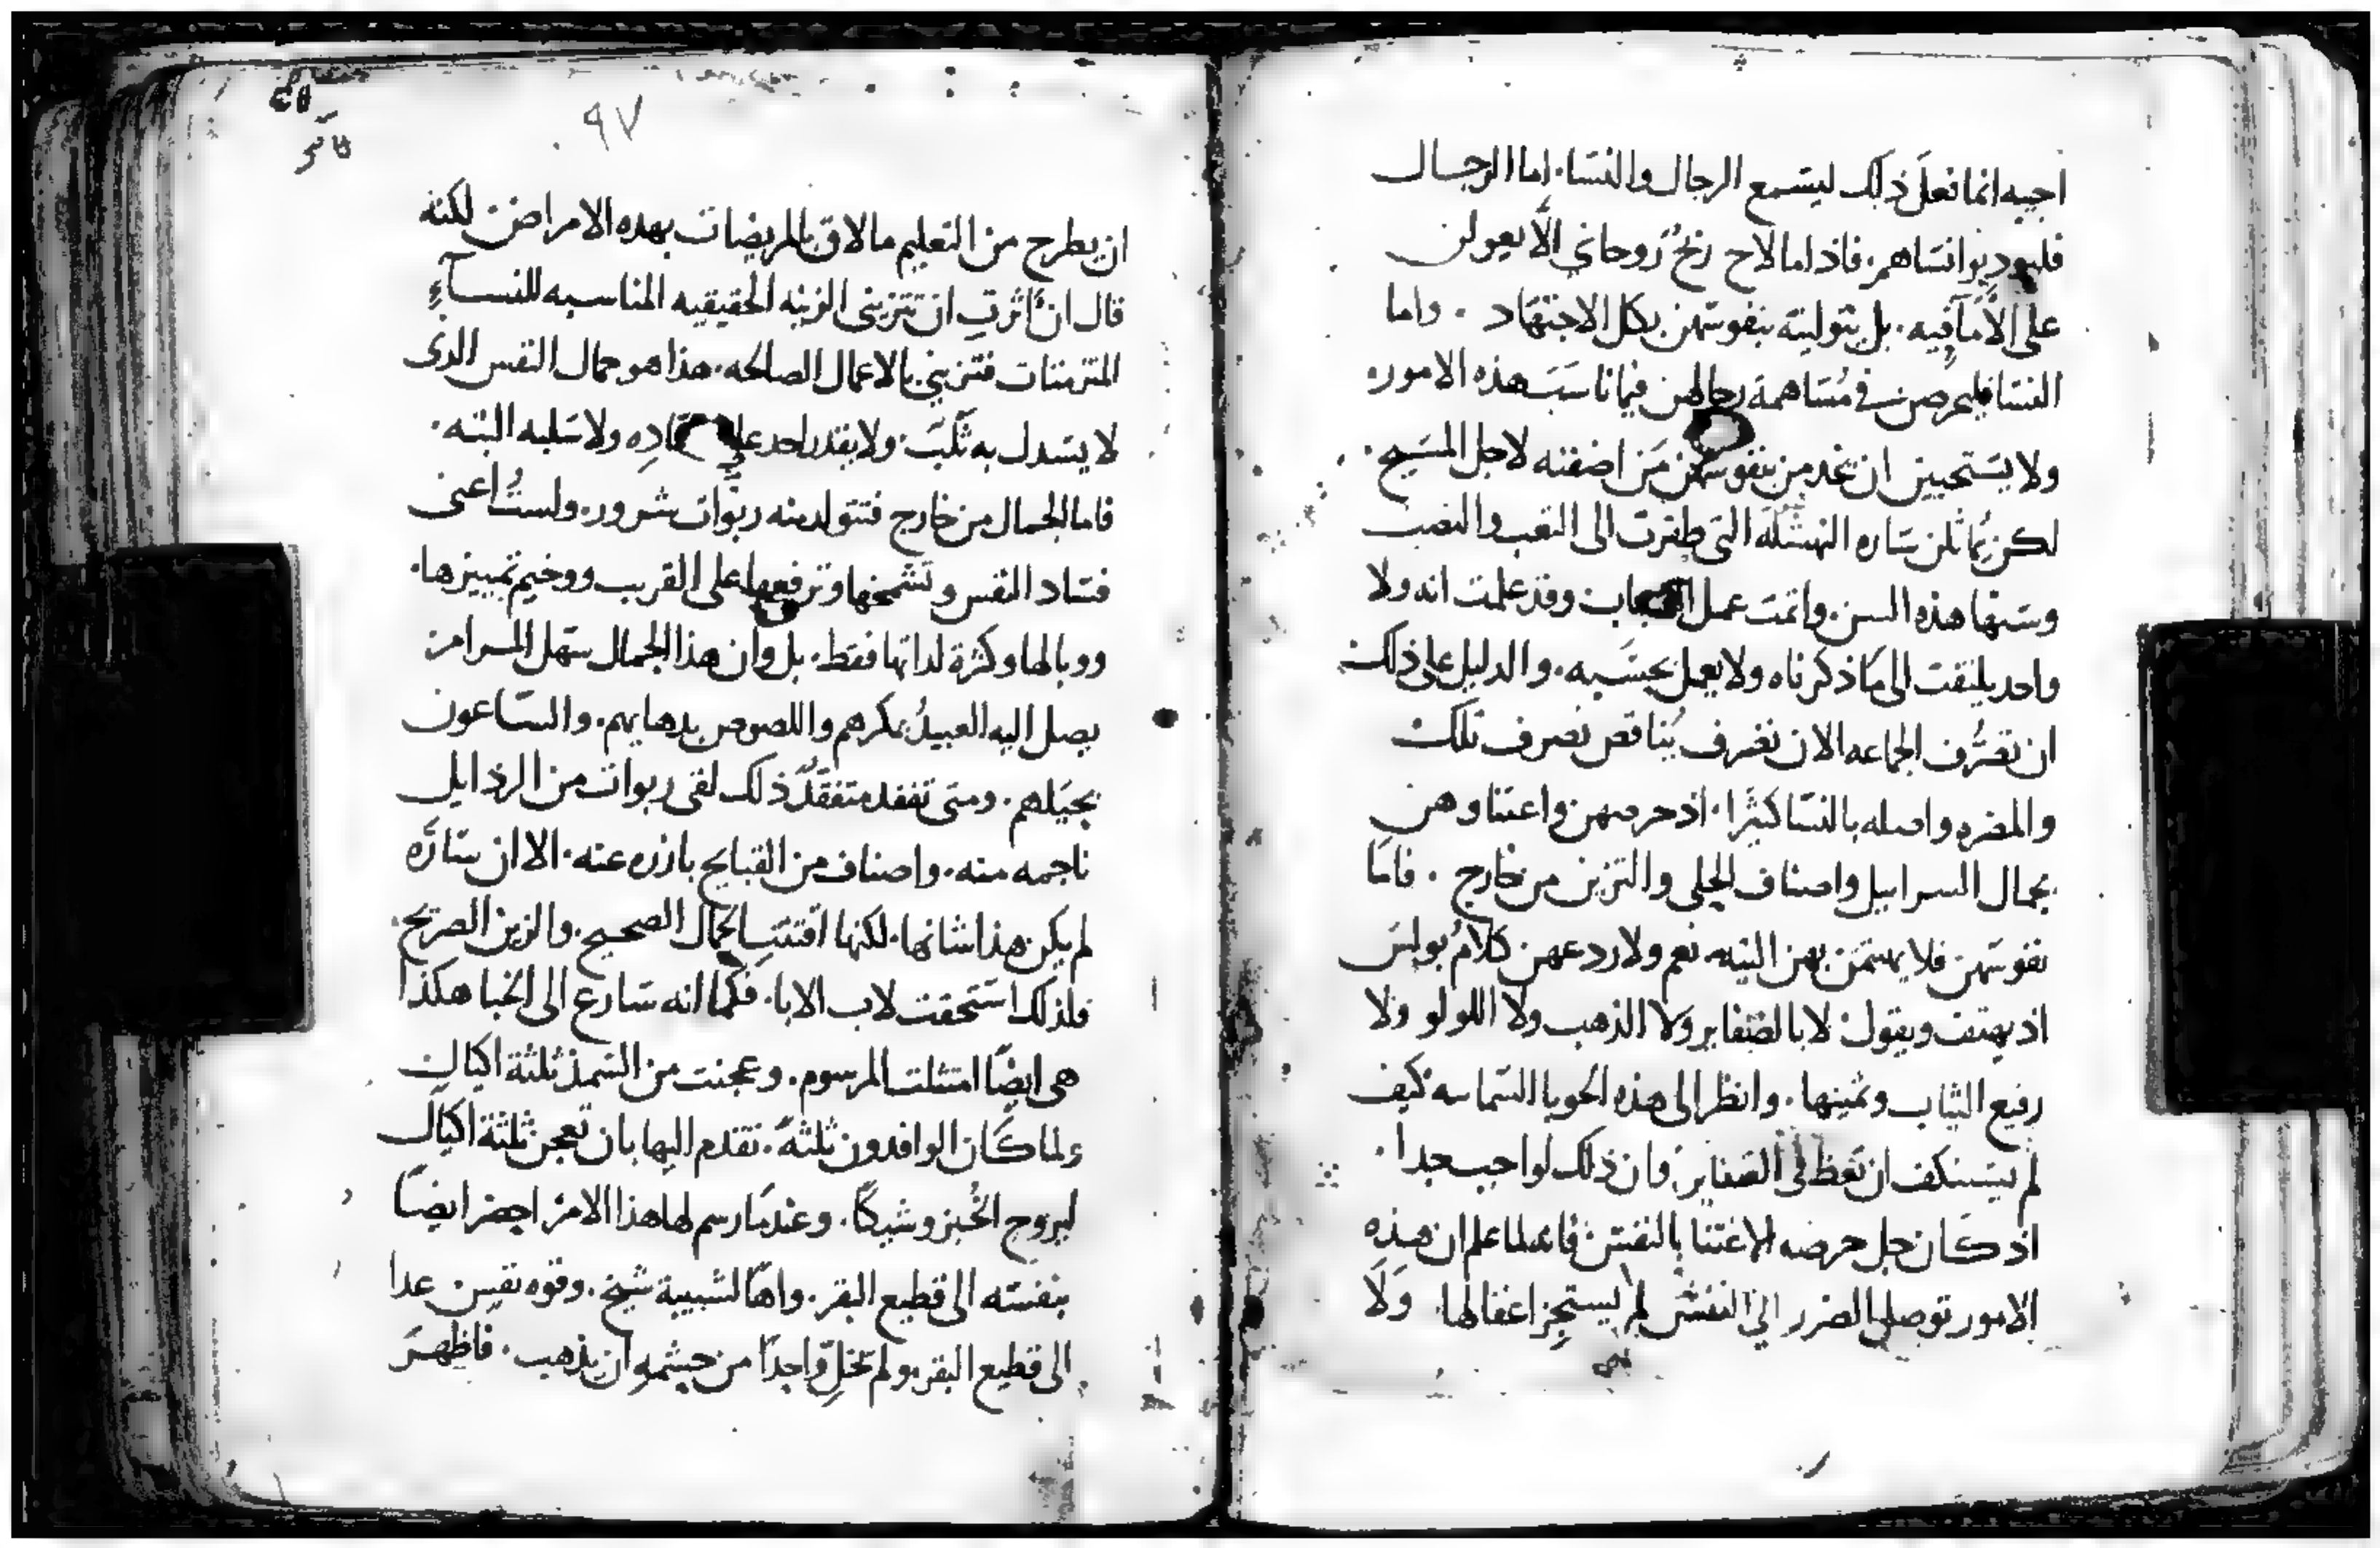 اجيبه انما نعل ذلك ليسمع الرجال والنسا. اما الرجال
فليودبوا نساهم. فاذا ما لاح ربح روحاني الّا يعولن
على الاما فيه. بل يتولينه بنفوسهن بكل الاجتهاد . واما
النسا فليحرصن في مساهمة رجالهن فيما ناسب هذه الامور.
ولا يستحيين ان يخدمن بنفوسهن من اضفنه لاجل المسيح.
لكن يماثلن ساره التي طفرت الى التعب والنصب
وسنها هذه السن. واتمت عمل وقد علمت انه ولا
واحد يلتفت الى ما ذكرناه ولا يعمل بحسبه. والدليل على ذلك
ان تصرف الجماعه الان تصرف يناقض تصرف تلك
والمضره واصله بالنسا كثيرا. اذ حرصهن واعتناوهن
بجمال السرابيل واصناف الحلي والتزين من خارج . فاما
نفوسهن فلا يهتمن بهن البته. نعم ولا ردعهن كلام بولس
اذ يهتف ويقول لا بالضفاير ولا الذهب ولا اللولو ولا
رفيع الثياب وثمينها. وانظر الى هذه الحوبا السمايه كيف
لم يستنكف ان تعظ في الضفاير. وان ذلك لواجب جدا.
اذ كان جل حرصه الاعتنا بالنفس فانه لما علم ان هذه
الامور توصل الضرر الي النفس لم يستجز اغفالها ولا
٩٧
ان يطرح من التعليم ما لاق بالمريضات بهده الامراض لكنه
قال ان اثرت ان تتزيني الزينه الحقيقيه المناسبه للنسآء
المتزينات فتزيني بالاعمال الصالحه. هذا هو جمال النفس الدى
لا يستدل به ثلب. ولا يقدر احد على ولا سلبه البته.
فاما الجمال من خارج فتتولد منه ربوات شرور. ولست اعنى
فساد النفس وتشمخها وترفعها على القريب ووخيم تمييزها.
ووبالها وكثرة لداتها فقط. بل وان هذا الجمال سهل المرامز
يصل اليه العبيد بمكرهم واللصوص بدهايهم. والساعون
بحيلهم. ومتى تفقد متفقد ذلك لقى ربوات من الرذايل
ناجمه منه. واصناف من القبايح بارزه عنه. الا ان ساره
لم يكن هذا شانها. لكنها اقتنت الجمال الصحيح. والزين الصريح
فلذلك استحقت لاب الابا. فكما انه سارع الى الخبا هكذا
هى ايضا امتثلت المرسوم. وعجنت من السمذ ثلثة اكيال
ولما كان الوافدون ثلثه. تقدم اليها بان تعجن ثلثة اكيال
ليروج الخبز وشيكا. وعندما رسم لها هذا الامر احضر ايضا
بنفسه الى قطيع البقر. واها لشبيبة شيخ. وقوه نفس عدا
الى قطيع البقر ولم يخل واحدا من حشمه ان يذهب. فاظهر